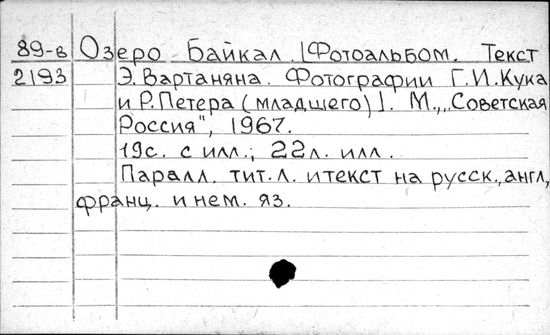 89-в Озеро Байкал. [Фотоальбом. Текст
2193 Э. Вартаняна. Фотографии Г.И. Кука
и Р. Петера (младшего)]. М., „Советская
Россия", 1967.
19с. с илл.; 22л. илл.
Паралл. тит. л. и текст на русск., англ,
франц. и нем. яз.